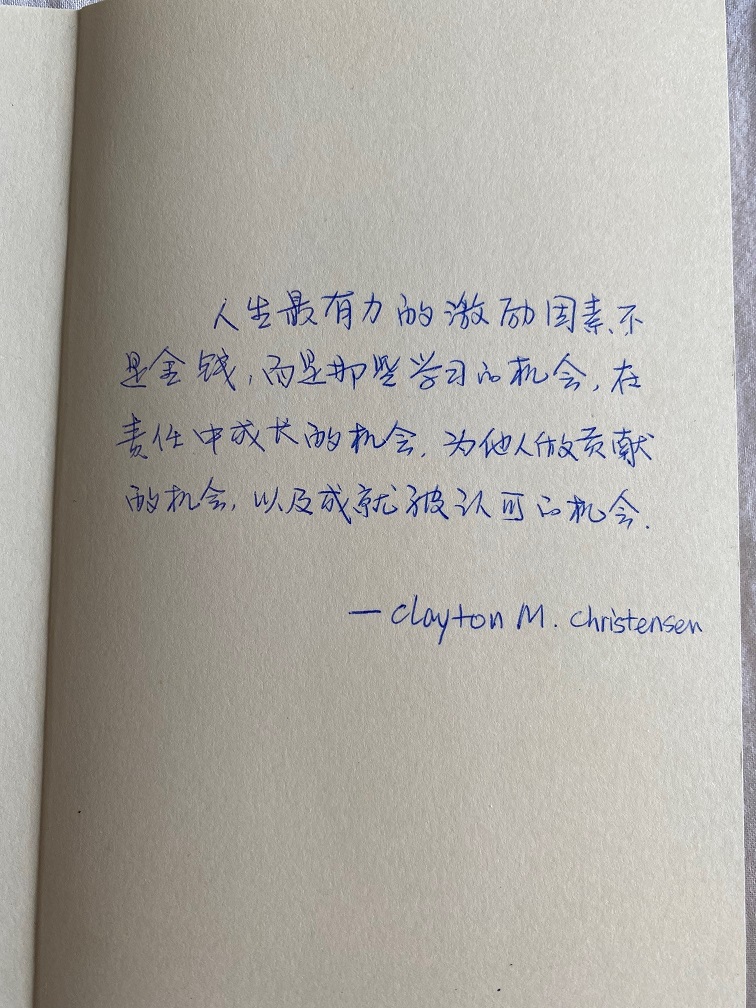 人生最有力的激励因素、不
是金钱，而是那些学习的机会，在
责任中成长的机会，为他人做贡献
的机会，以及成就被认可的机会.
— Clayton M. Christensen